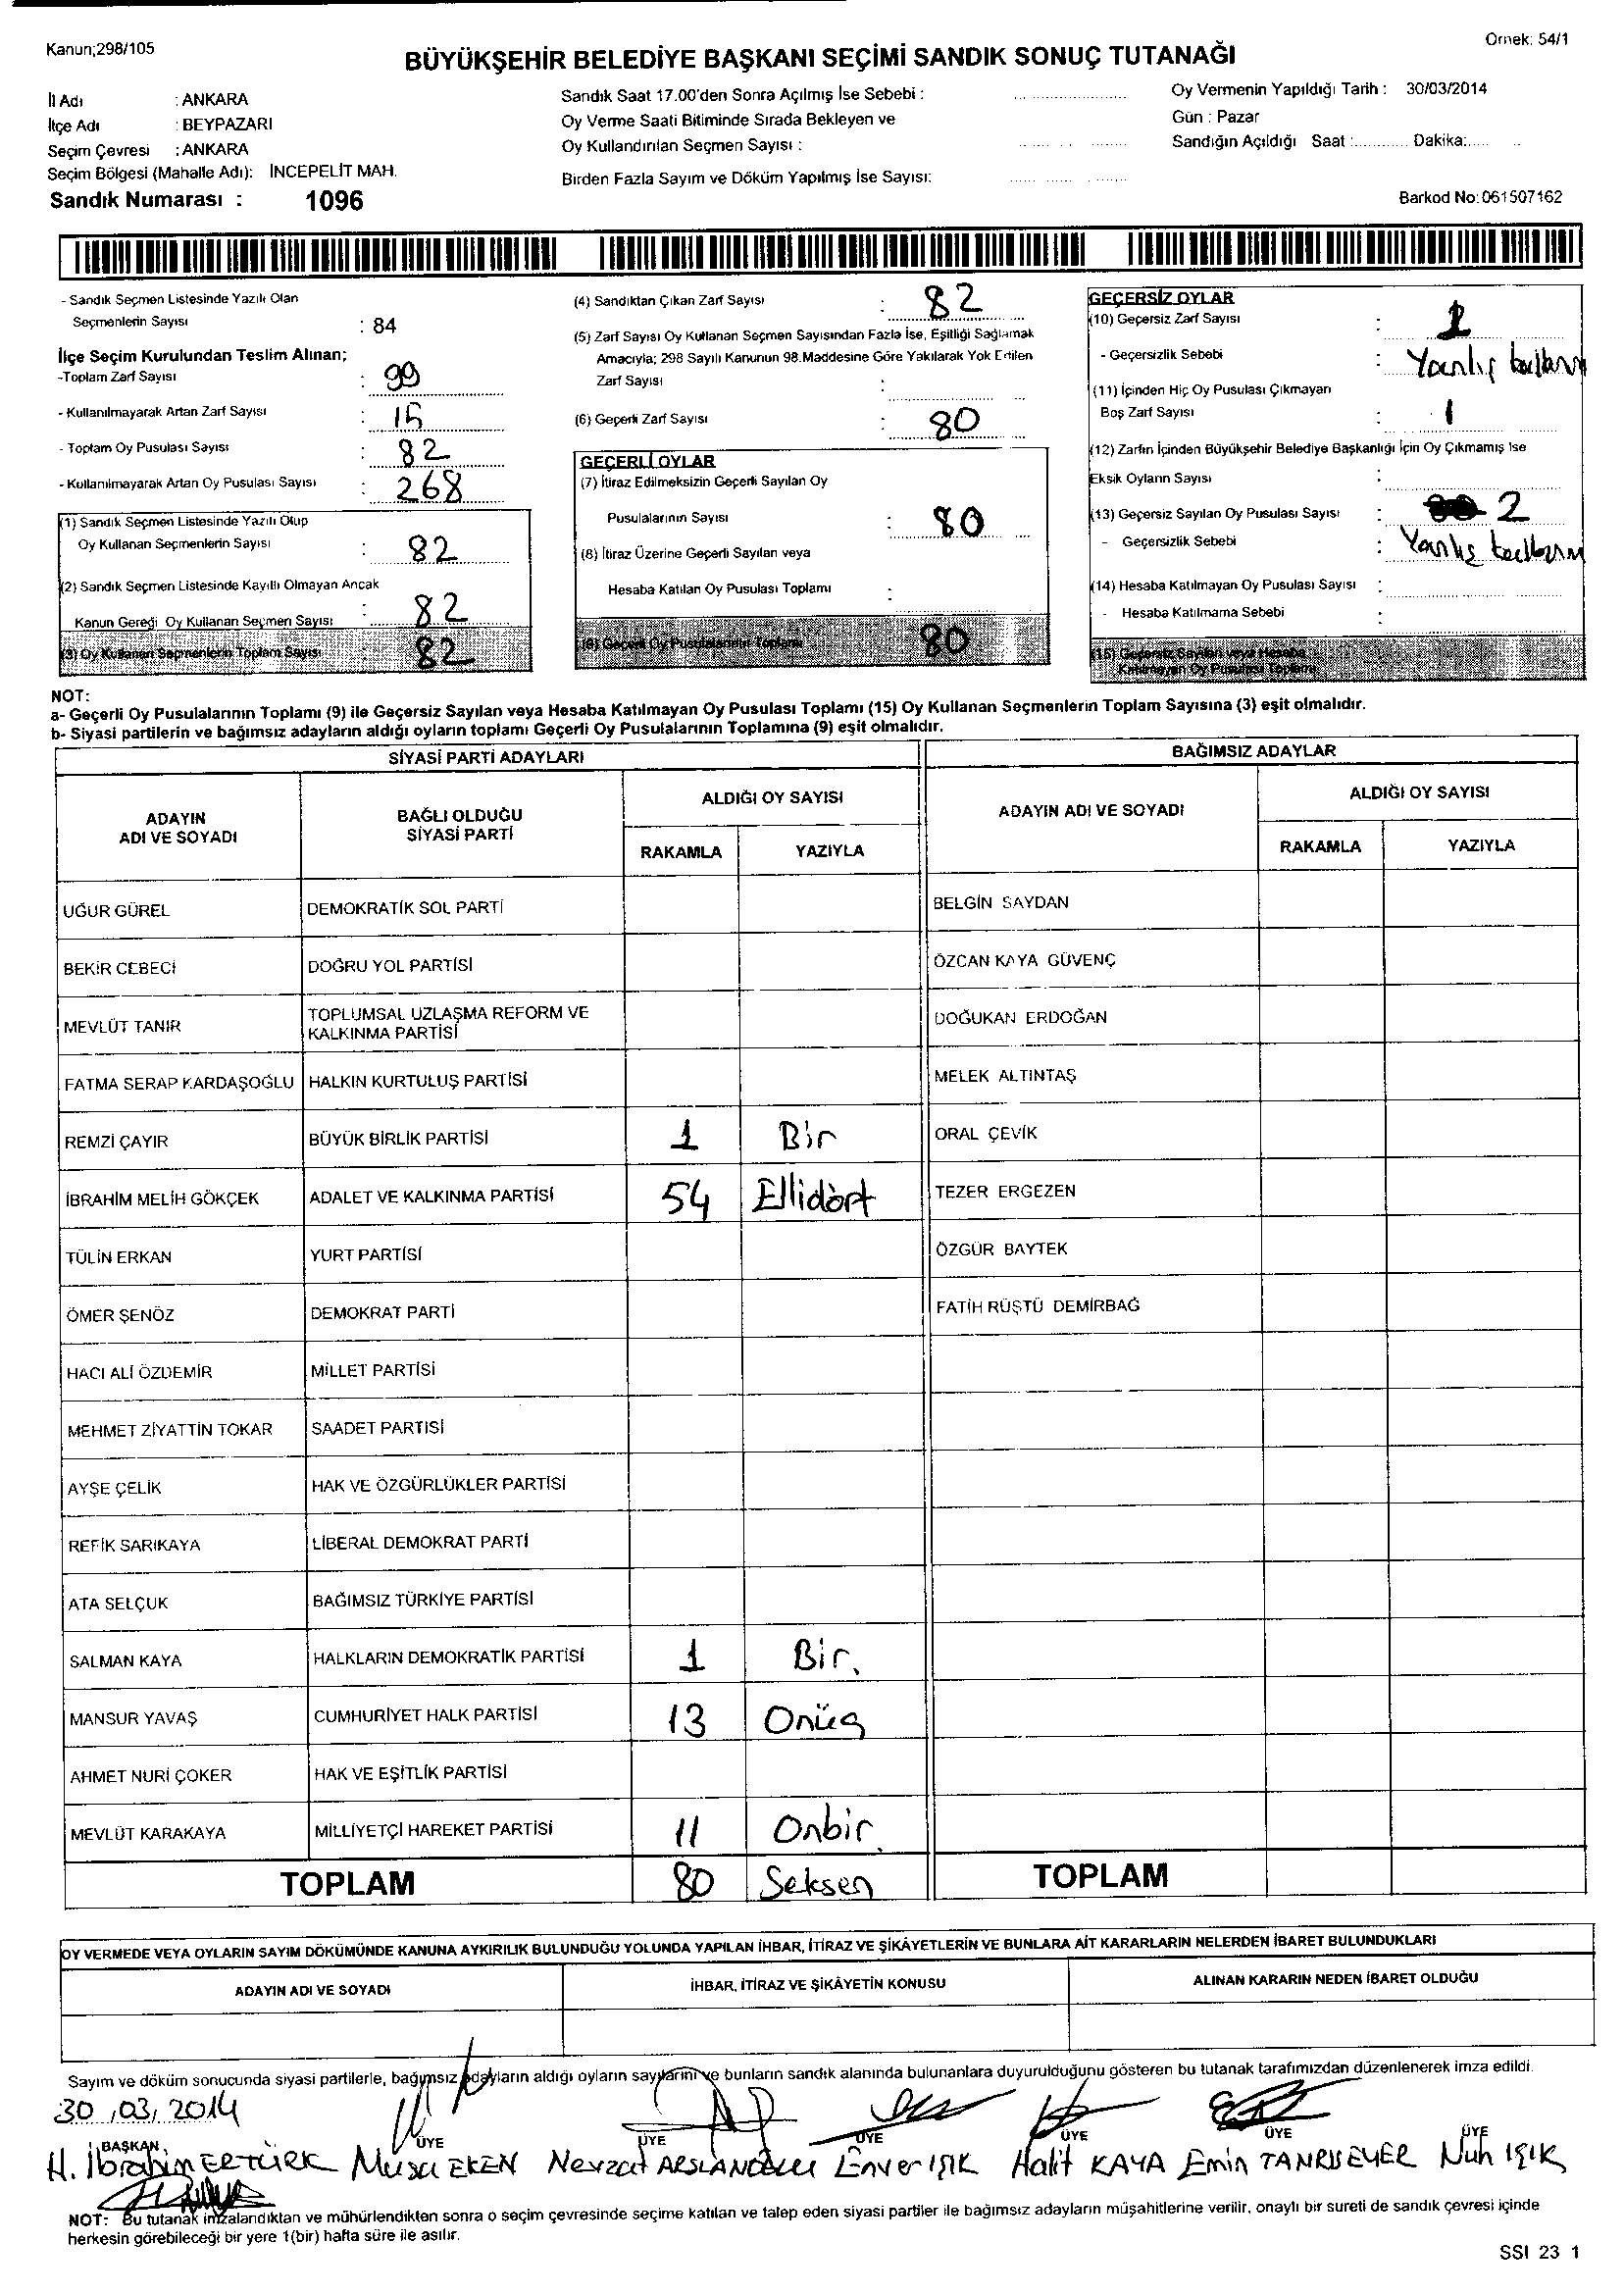 Kanun;298/105
Ornek: 54/1
BÜYÜKŞEHİR BELEDİYE BAŞKANI SEÇİMİ SANDIK SONUÇ TUTANAĞI
İl Adı : ANKARA
İlçe Adı : BEYPAZARI
Seçim Çevresi : ANKARA
Seçim Bölgesi (Mahalle Adı): İNCEPELİT MAH.
Sandık Numarası : 1096
Sandık Saat 17.00'den Sonra Açılmış İse Sebebi :
Oy Verme Saati Bitiminde Sırada Bekleyen ve
Oy Kullandırılan Seçmen Sayısı :
Birden Fazla Sayım ve Döküm Yapılmış İse Sayısı:
Oy Vermenin Yapıldığı Tarih : 30/03/2014
Gün : Pazar
Sandığın Açıldığı Saat :............ Dakika:.....
Barkod No:061507162
- Sandık Seçmen Listesinde Yazılı Olan
Seçmenlerin Sayısı : 84
İlçe Seçim Kurulundan Teslim Alınan;
-Toplam Zarf Sayısı : 99
- Kullanılmayarak Artan Zarf Sayısı : 15
- Toplam Oy Pusulası Sayısı : 82
- Kullanılmayarak Artan Oy Pusulası Sayısı : 268
(1) Sandık Seçmen Listesinde Yazılı Olup
Oy Kullanan Seçmenlerin Sayısı : 82
(2) Sandık Seçmen Listesinde Kayıtlı Olmayan Ancak
Kanun Gereği Oy Kullanan Seçmen Sayısı : 82
(3) Oy Kullanan Seçmenlerin Toplam Sayısı 82
(4) Sandıktan Çıkan Zarf Sayısı : 82
(5) Zarf Sayısı Oy Kullanan Seçmen Sayısından Fazla İse, Eşitliği Sağlamak
Amacıyla; 298 Sayılı Kanunun 98.Maddesine Göre Yakılarak Yok Edilen
Zarf Sayısı :
(6) Geçerli Zarf Sayısı : 80
GEÇERLİ OYLAR
(7) İtiraz Edilmeksizin Geçerli Sayılan Oy
Pusulalarının Sayısı : 80
(8) İtiraz Üzerine Geçerli Sayılan veya
Hesaba Katılan Oy Pusulası Toplamı :
(9) Geçerli Oy Pusulalarının Toplamı 80
GEÇERSİZ OYLAR
(10) Geçersiz Zarf Sayısı : 1
- Geçersizlik Sebebi : Yanlış
(11) İçinden Hiç Oy Pusulası Çıkmayan
Boş Zarf Sayısı : 1
(12) Zarfın İçinden Büyükşehir Belediye Başkanlığı İçin Oy Çıkmamış Ise
Eksik Oyların Sayısı :
(13) Geçersiz Sayılan Oy Pusulası Sayısı : 2
- Geçersizlik Sebebi : Yanlış
(14) Hesaba Katılmayan Oy Pusulası Sayısı :
- Hesaba Katılmama Sebebi :
(15) Geçersiz Sayılan veya Hesaba
Katılmayan Oy Pusulası Toplamı
NOT:
a- Geçerli Oy Pusulalarının Toplamı (9) ile Geçersiz Sayılan veya Hesaba Katılmayan Oy Pusulası Toplamı (15) Oy Kullanan Seçmenlerin Toplam Sayısına (3) eşit olmalıdır.
b- Siyasi partilerin ve bağımsız adayların aldığı oyların toplamı Geçerli Oy Pusulalarının Toplamına (9) eşit olmalıdır.
SİYASİ PARTİ ADAYLARI
BAĞIMSIZ ADAYLAR
ADAYIN ADI VE SOYADI
BAĞLI OLDUĞU SİYASİ PARTİ
ALDIĞI OY SAYISI
RAKAMLA YAZIYLA
ADAYIN ADI VE SOYADI
ALDIĞI OY SAYISI
RAKAMLA YAZIYLA
UĞUR GÜREL DEMOKRATİK SOL PARTİ BELGİN SAYDAN
BEKİR CEBECİ DOĞRU YOL PARTİSİ ÖZCAN KAYA GÜVENÇ
MEVLÜT TANIR TOPLUMSAL UZLAŞMA REFORM VE KALKINMA PARTİSİ DOĞUKAN ERDOĞAN
FATMA SERAP KARDAŞOĞLU HALKIN KURTULUŞ PARTİSİ MELEK ALTINTAŞ
REMZİ ÇAYIR BÜYÜK BİRLİK PARTİSİ 1 Bir ORAL ÇEVİK
İBRAHİM MELİH GÖKÇEK ADALET VE KALKINMA PARTİSİ 54 Ellidört TEZER ERGEZEN
TÜLİN ERKAN YURT PARTİSİ ÖZGÜR BAYTEK
ÖMER ŞENÖZ DEMOKRAT PARTİ FATİH RÜŞTÜ DEMİRBAĞ
HACI ALİ ÖZDEMİR MİLLET PARTİSİ
MEHMET ZİYATTİN TOKAR SAADET PARTISİ
AYŞE ÇELİK HAK VE ÖZGÜRLÜKLER PARTİSİ
REFİK SARIKAYA LİBERAL DEMOKRAT PARTİ
ATA SELÇUK BAĞIMSIZ TÜRKİYE PARTİSİ
SALMAN KAYA HALKLARIN DEMOKRATİK PARTİSİ 1 Bir.
MANSUR YAVAŞ CUMHURİYET HALK PARTİSİ 13 Onüç
AHMET NURİ ÇOKER HAK VE EŞİTLİK PARTİSİ
MEVLÜT KARAKAYA MİLLİYETÇİ HAREKET PARTİSİ 11 Onbir
TOPLAM 80 Seksen TOPLAM
OY VERMEDE VEYA OYLARIN SAYIM DÖKÜMÜNDE KANUNA AYKIRILIK BULUNDUĞU YOLUNDA YAPILAN İHBAR, İTİRAZ VE ŞİKÂYETLERİN VE BUNLARA AİT KARARLARIN NELERDEN İBARET BULUNDUKLARI
ADAYIN ADI VE SOYADI İHBAR, İTİRAZ VE ŞİKÂYETİN KONUSU ALINAN KARARIN NEDEN İBARET OLDUĞU
Sayım ve döküm sonucunda siyasi partilerle, bağımsız adayların aldığı oyların sayılarını ve bunların sandık alanında bulunanlara duyurulduğunu gösteren bu tutanak tarafımızdan düzenlenerek imza edildi.
30 / 03 / 2014
BAŞKAN ÜYE ÜYE ÜYE ÜYE ÜYE ÜYE
H. İbrahim ERTÜRK Musa EKEN Nevzat ARSLANOĞLU Enver IŞIK Halit KAYA Emin TANRISEVER Nuh IŞIK
NOT: Bu tutanak imzalandıktan ve mühürlendikten sonra o seçim çevresinde seçime katılan ve talep eden siyasi partiler ile bağımsız adayların müşahitlerine verilir, onaylı bir sureti de sandık çevresi içinde
herkesin görebileceği bir yere 1(bir) hafta süre ile asılır.
SSI 23 1